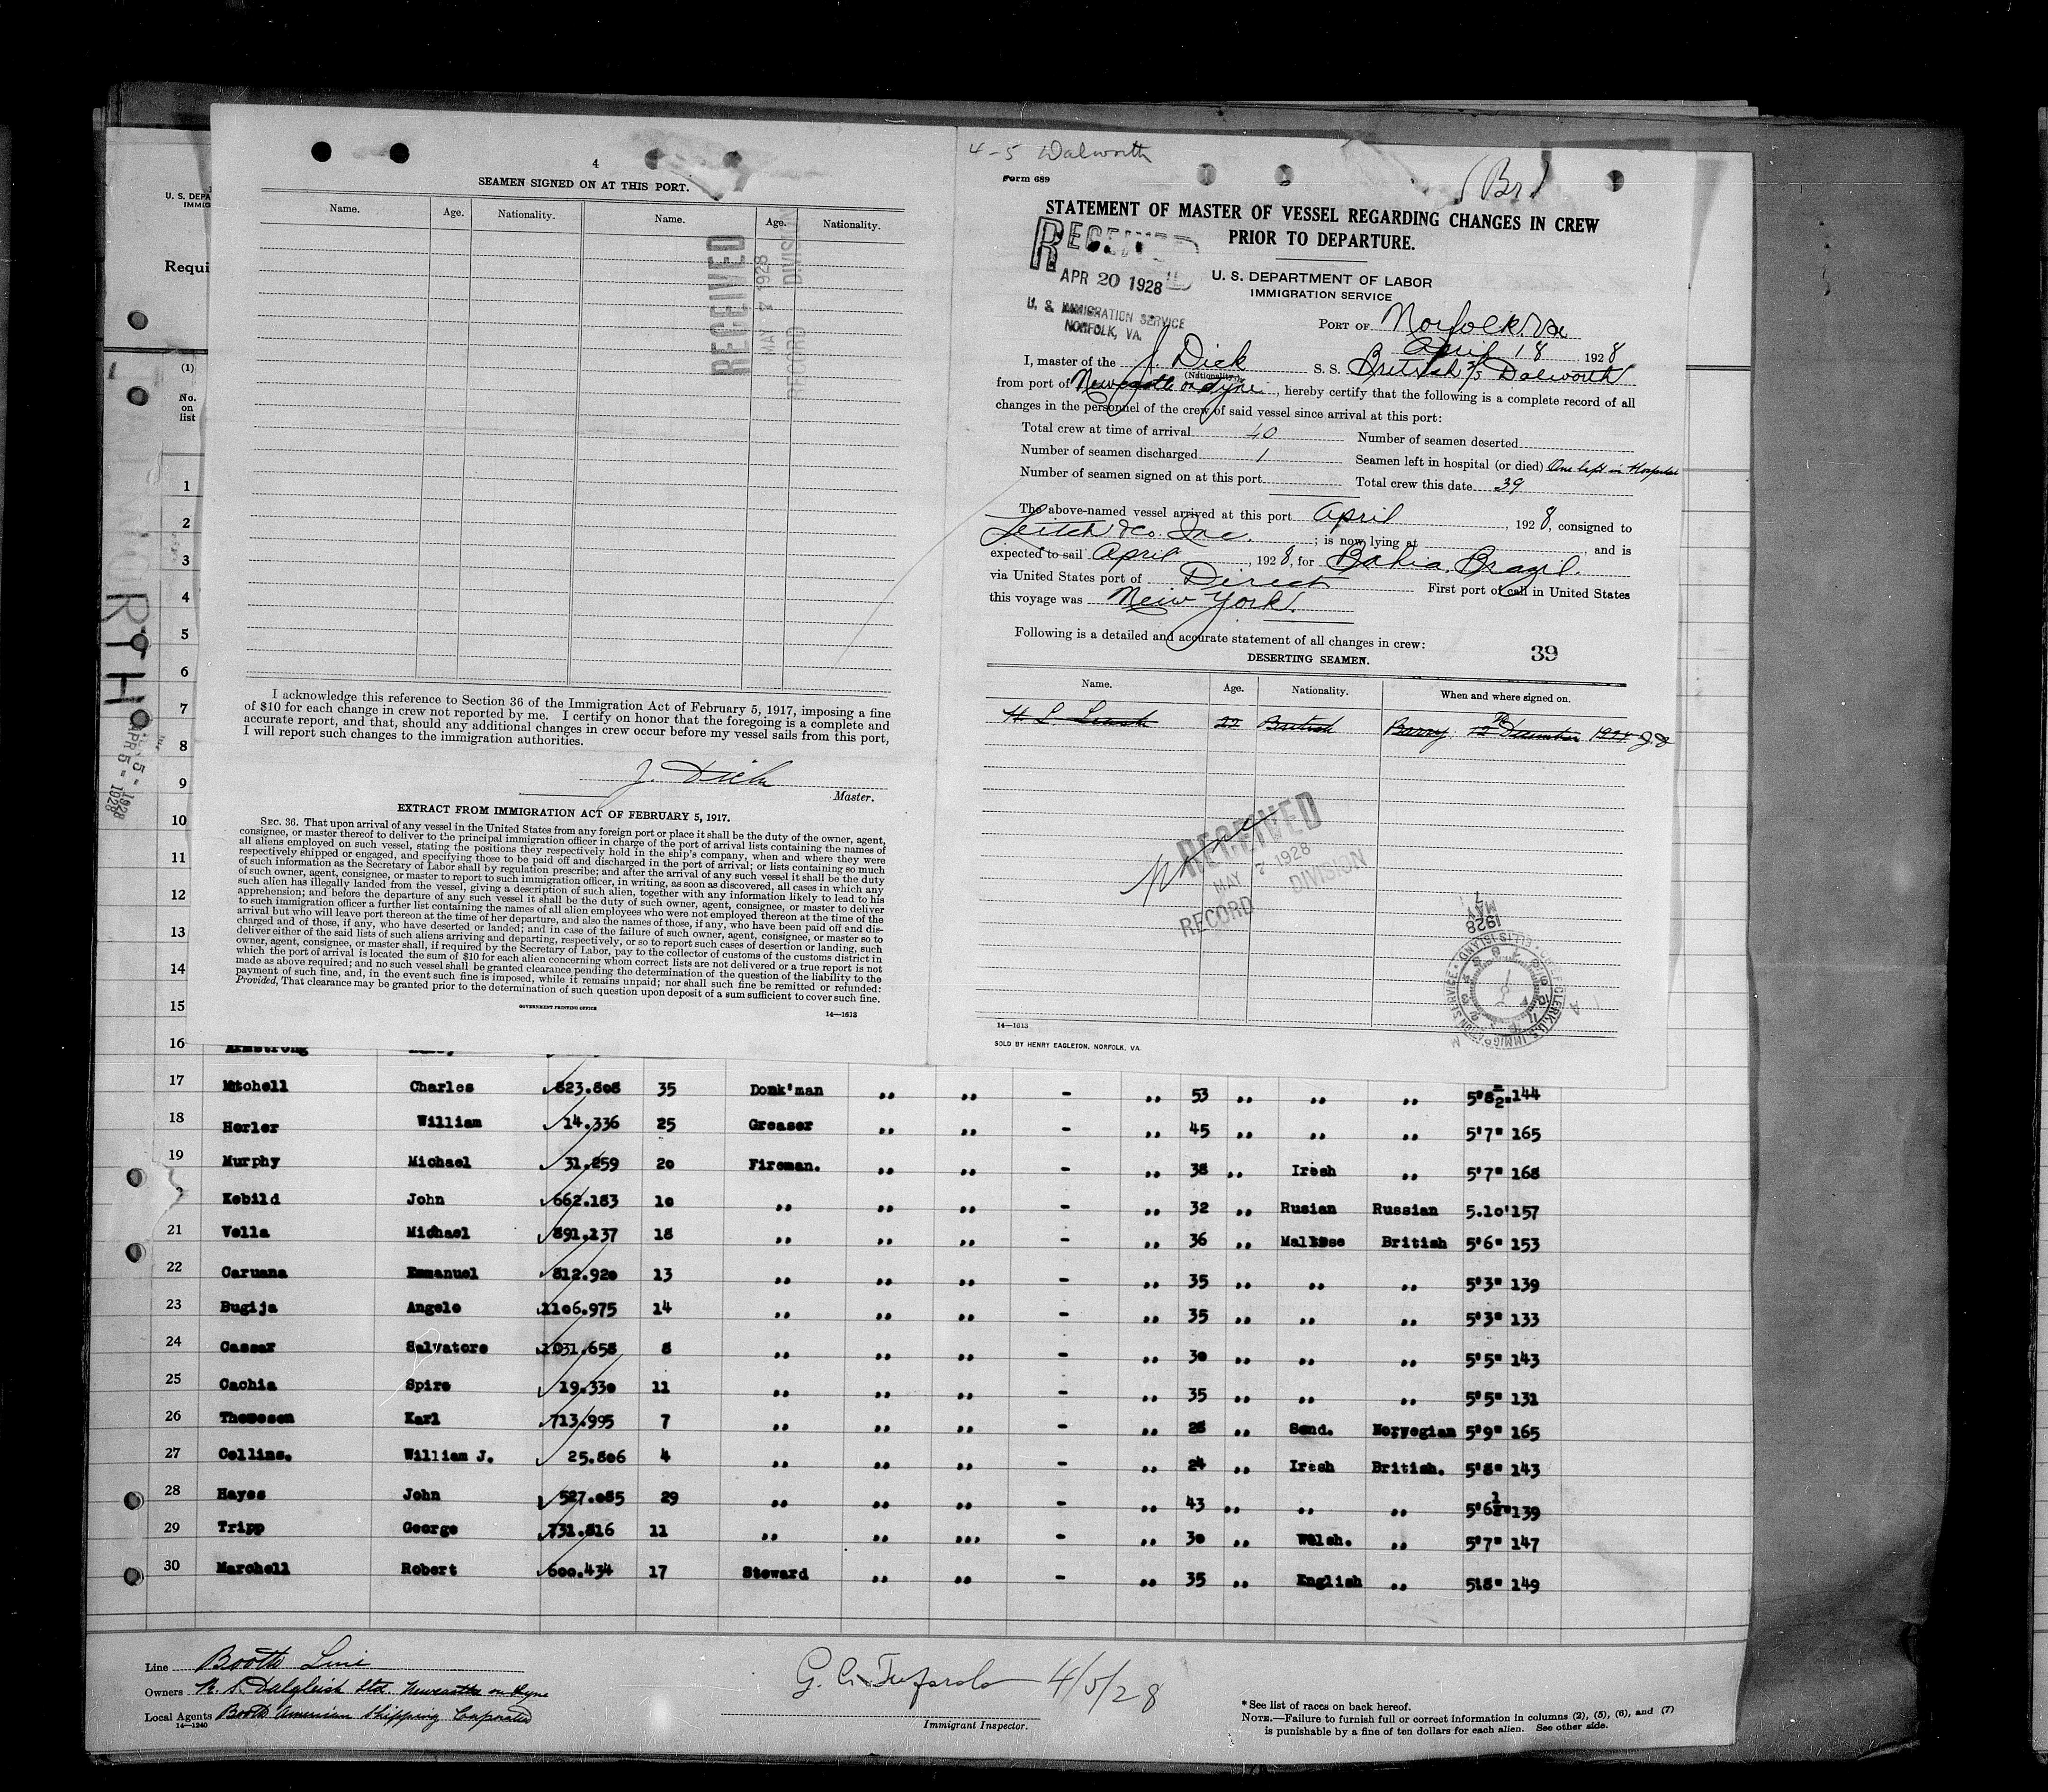 4
SEAMEN SIGNED ON AT THIS PORT.
Name. Age. Nationality. Name. Age. Nationality.
RECEIVED
MAY 7 1928
RECORD DIVISION
I acknowledge this reference to Section 36 of the Immigration Act of February 5, 1917, imposing a fine
of $10 for each change in crew not reported by me. I certify on honor that the foregoing is a complete and
accurate report, and that, should any additional changes in crew occur before my vessel sails from this port,
I will report such changes to the immigration authorities.
J. Dick
Master.
EXTRACT FROM IMMIGRATION ACT OF FEBRUARY 5, 1917.
SEC. 36. That upon arrival of any vessel in the United States from any foreign port or place it shall be the duty of the owner, agent,
consignee, or master thereof to deliver to the principal immigration officer in charge of the port of arrival lists containing the names of
all aliens employed on such vessel, stating the positions they respectively hold in the ship's company, when and where they were
respectively shipped or engaged, and specifying those to be paid off and discharged in the port of arrival; or lists containing so much
of such information as the Secretary of Labor shall by regulation prescribe; and after the arrival of any such vessel it shall be the duty
of such owner, agent, consignee, or master to report to such immigration officer, in writing, as soon as discovered, all cases in which any
such alien has illegally landed from the vessel, giving a description of such alien, together with any information likely to lead to his
apprehension; and before the departure of any such vessel it shall be the duty of such owner, agent, consignee, or master to deliver
to such immigration officer a further list containing the names of all alien employees who were not employed thereon at the time of the
arrival but who will leave port thereon at the time of her departure, and also the names of those, if any, who have been paid off and dis-
charged and of those, if any, who have deserted or landed; and in case of the failure of such owner, agent, consignee, or master so to
deliver either of the said lists of such aliens arriving and departing, respectively, or so to report such cases of desertion or landing, such
owner, agent, consignee, or master shall, if required by the Secretary of Labor, pay to the collector of customs of the customs district in
which the port of arrival is located the sum of $10 for each alien concerning whom correct lists are not delivered or a true report is not
made as above required; and no such vessel shall be granted clearance pending the determination of the question of the liability to the
payment of such fine, and, in the event such fine is imposed, while it remains unpaid; nor shall such fine be remitted or refunded:
Provided, That clearance may be granted prior to the determination of such question upon deposit of a sum sufficient to cover such fine.
GOVERNMENT PRINTING OFFICE
14—1613
4-5 Dalworth
Form 689
(Br)
STATEMENT OF MASTER OF VESSEL REGARDING CHANGES IN CREW
PRIOR TO DEPARTURE.
RECEIVED
APR 20 1928
U. S. IMMIGRATION SERVICE
NORFOLK, VA.
U. S. DEPARTMENT OF LABOR
IMMIGRATION SERVICE
PORT OF Norfolk, Va
April 18 1928
I, master of the J. Dick S. S. British S/S Dalworth
(Nationality.)
from port of Newcastle on Tyne, hereby certify that the following is a complete record of all
changes in the personnel of the crew of said vessel since arrival at this port:
Total crew at time of arrival 40 Number of seamen deserted
Number of seamen discharged 1 Seamen left in hospital (or died) One left in Hospital
Number of seamen signed on at this port Total crew this date 39
The above-named vessel arrived at this port April, 1928, consigned to
Leitch & Co. Inc.; is now lying at , and is
expected to sail April, 1928, for Bahia, Brazil.
via United States port of Direct First port of call in United States
this voyage was New York.
Following is a detailed and accurate statement of all changes in crew:
39
DESERTING SEAMEN.
Name. Age. Nationality. When and where signed on.
H. L. 22 British Barry 12th December J.D
None
RECEIVED
MAY 7 1928
RECORD DIVISION
MAY 7 1928
14—1613
SOLD BY HENRY EAGLETON, NORFOLK, VA.
U. S. DEPA
IMMIG
Requi
(1)
No.
on
list
DALWORTH
APR 5 - 1928
1
2
3
4
5
6
7
8
9
10
11
12
13
14
15
16 Armstrong
17 Mtchell Charles 823.808 35 Donk'man ,, ,, - ,, 53 ,, ,, ,, 5'8½" 144
18 Herler William 14.336 25 Greaser ,, ,, - ,, 45 ,, ,, ,, 5'7" 165
19 Murphy Michael 31.259 20 Fireman. ,, ,, - ,, 38 ,, Iresh ,, 5'7" 168
Kebild John 662.183 10 ,, ,, ,, - ,, 32 ,, Rusian Russian 5.10' 157
21 Vella Michael 891.137 18 ,, ,, ,, - ,, 36 ,, Maltese British 5'6" 153
22 Caruana Emmanuel 812.920 13 ,, ,, ,, - ,, 35 ,, ,, ,, 5'3" 139
23 Bugija Angelo 1106.975 14 ,, ,, ,, - ,, 35 ,, ,, ,, 5'3" 133
24 Cassar Salvatore 1031.658 8 ,, ,, ,, - ,, 30 ,, ,, ,, 5'5" 143
25 Cachia Spiro 19.330 11 ,, ,, ,, - ,, 35 ,, ,, ,, 5'5" 131
26 Thomesen Karl 713.995 7 ,, ,, ,, - ,, 28 ,, Scnd. Norwegian 5'9" 165
27 Collins. William J. 25.806 4 ,, ,, ,, - ,, 24 ,, Iresh British. 5'8" 143
28 Hayes John 527.085 29 ,, ,, ,, - ,, 43 ,, ,, ,, 5'6½" 139
29 Tripp George 731.816 11 ,, ,, ,,. - ,, 30 ,, Welsh. ,, 5'7" 147
30 Marchell Robert 600.434 17 Steward ,, ,, - ,, 35 ,, English ,, 5'8" 149
Line Booth Line
Owners R. S. Dalgleish Ltd Newcastle on Tyne
Local Agents Booth American Shipping Corporation
14—1240
4/5/28
Immigrant Inspector.
* See list of races on back hereof.
NOTE.—Failure to furnish full or correct information in columns (2), (5), (6), and (7)
is punishable by a fine of ten dollars for each alien. See other side.